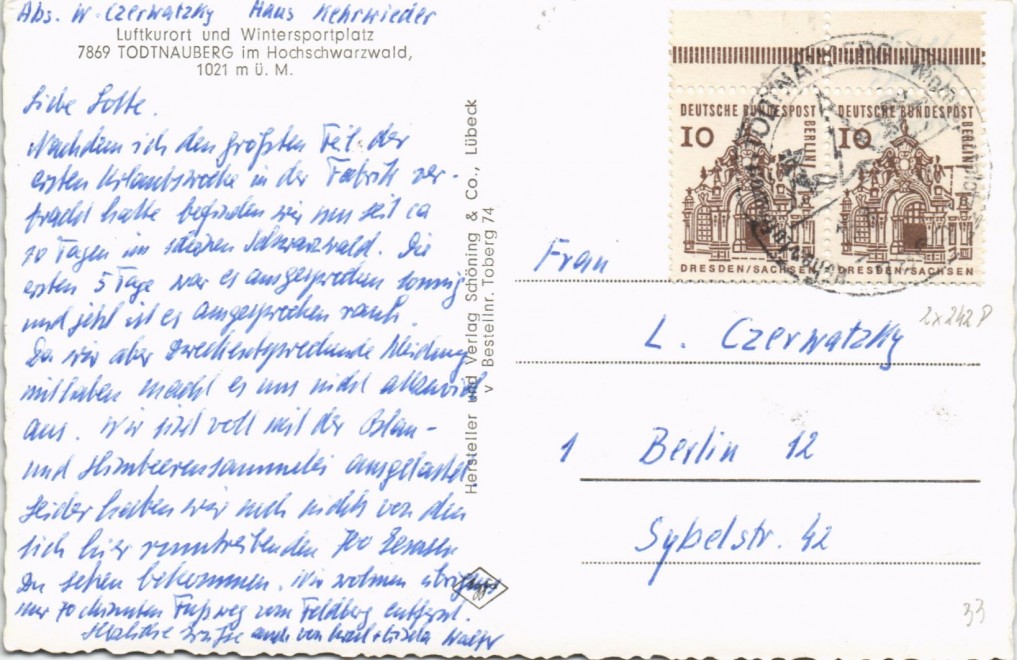 Abs. W. Czerwatzky Haus Kehrwieder
Luftkurort und Wintersportplatz
7869 TODTNAUBERG im Hochschwarzwald,
1021 m ü. M.
Liebe Lotte.
Nachdem ich den größten Teil der
ersten Urlaubswoche in der Fabrik ver-
bracht hatte befinden wir uns seit ca
10 Tagen im schönen Schwarzwald. Die
ersten 5 Tage war es ausgesprochen sonnig
und jetzt ist es ausgesprochen rauh.
Da wir aber zweckentsprechende Kleidung
mithaben macht es uns nicht allzuviel
aus. Wir sind voll mit der Blau-
und Himbeerensammelei ausgelastet
Leider haben wir noch nichts von den
sich hier rumtreibenden
zu sehen bekommen. Wir wohnen übrigens
nur 70 Minuten Fußweg vom Feldberg entfernt.
Herzliche Grüße auch von + Gisela Walter
Hersteller und Verlag Schöning & Co., Lübeck
v Bestellnr. Toberg 74
DEUTSCHE BUNDESPOST BERLIN
10
DRESDEN/SACHSEN
DEUTSCHE BUNDESPOST BERLIN
10
DRESDEN/SACHSEN
TODTNAUBERG
2x242P
Frau
L. Czerwatzky
1 Berlin 12
Sybelstr. 42
33